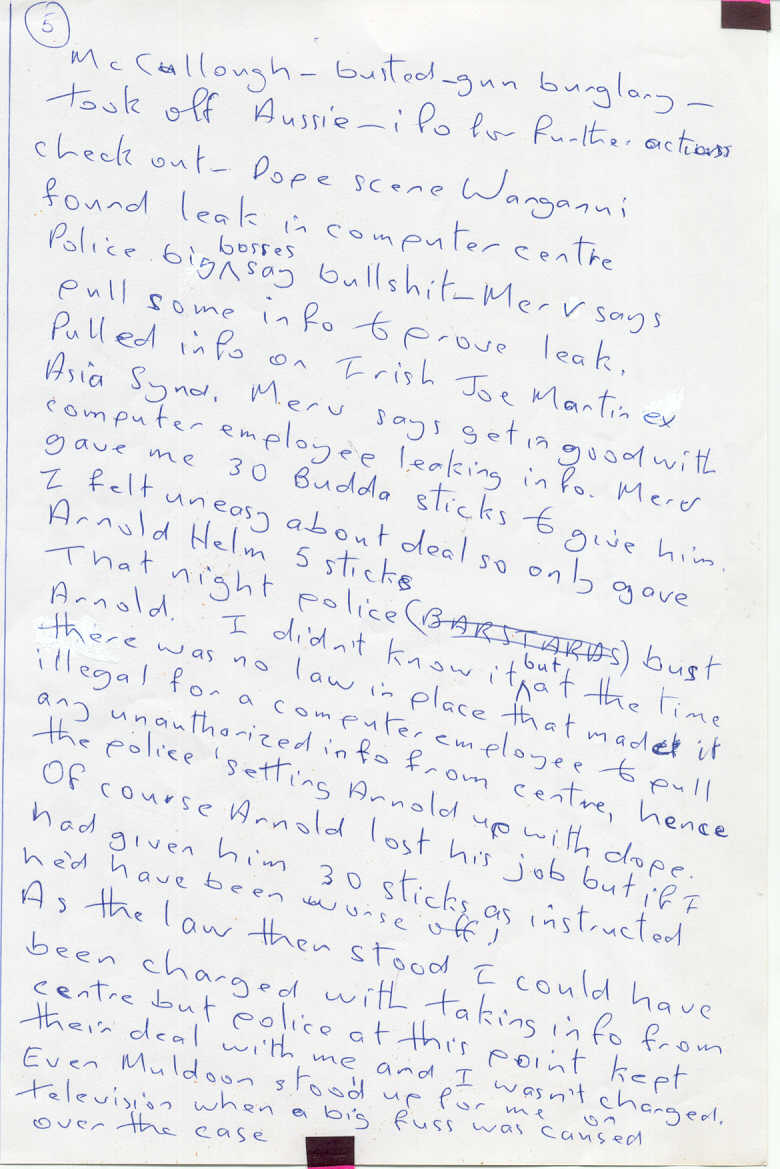 5
McCullough – busted – gun burglary –
took off Aussie – ifo for further actions
check out – Dope scene Wanganui
found leak in computer centre
Police big bosses say bullshit – Merv says
pull some info to prove leak.
Pulled info on Irish Joe Martin ex
Asia Synd. Merv says get in good with
computer employee leaking info. Merv
gave me 30 Budda sticks to give him.
I felt uneasy about deal so only gave
Arnold Helm 5 sticks
That night police (BARSTARDS) bust
Arnold. I didn't know it but at the time
there was no law in place that made it
illegal for a computer employee to pull
any unauthorized info from centre, hence
the police 'setting Arnold up with dope.
Of course Arnold lost his job but if I
had given him 30 sticks as instructed
he'd have been worse off!
As the law then stood I could have
been charged with taking info from
centre but police at this point kept
their deal with me and I wasn't charged.
Even Muldoon stood up for me on
television when a big fuss was caused
over the case